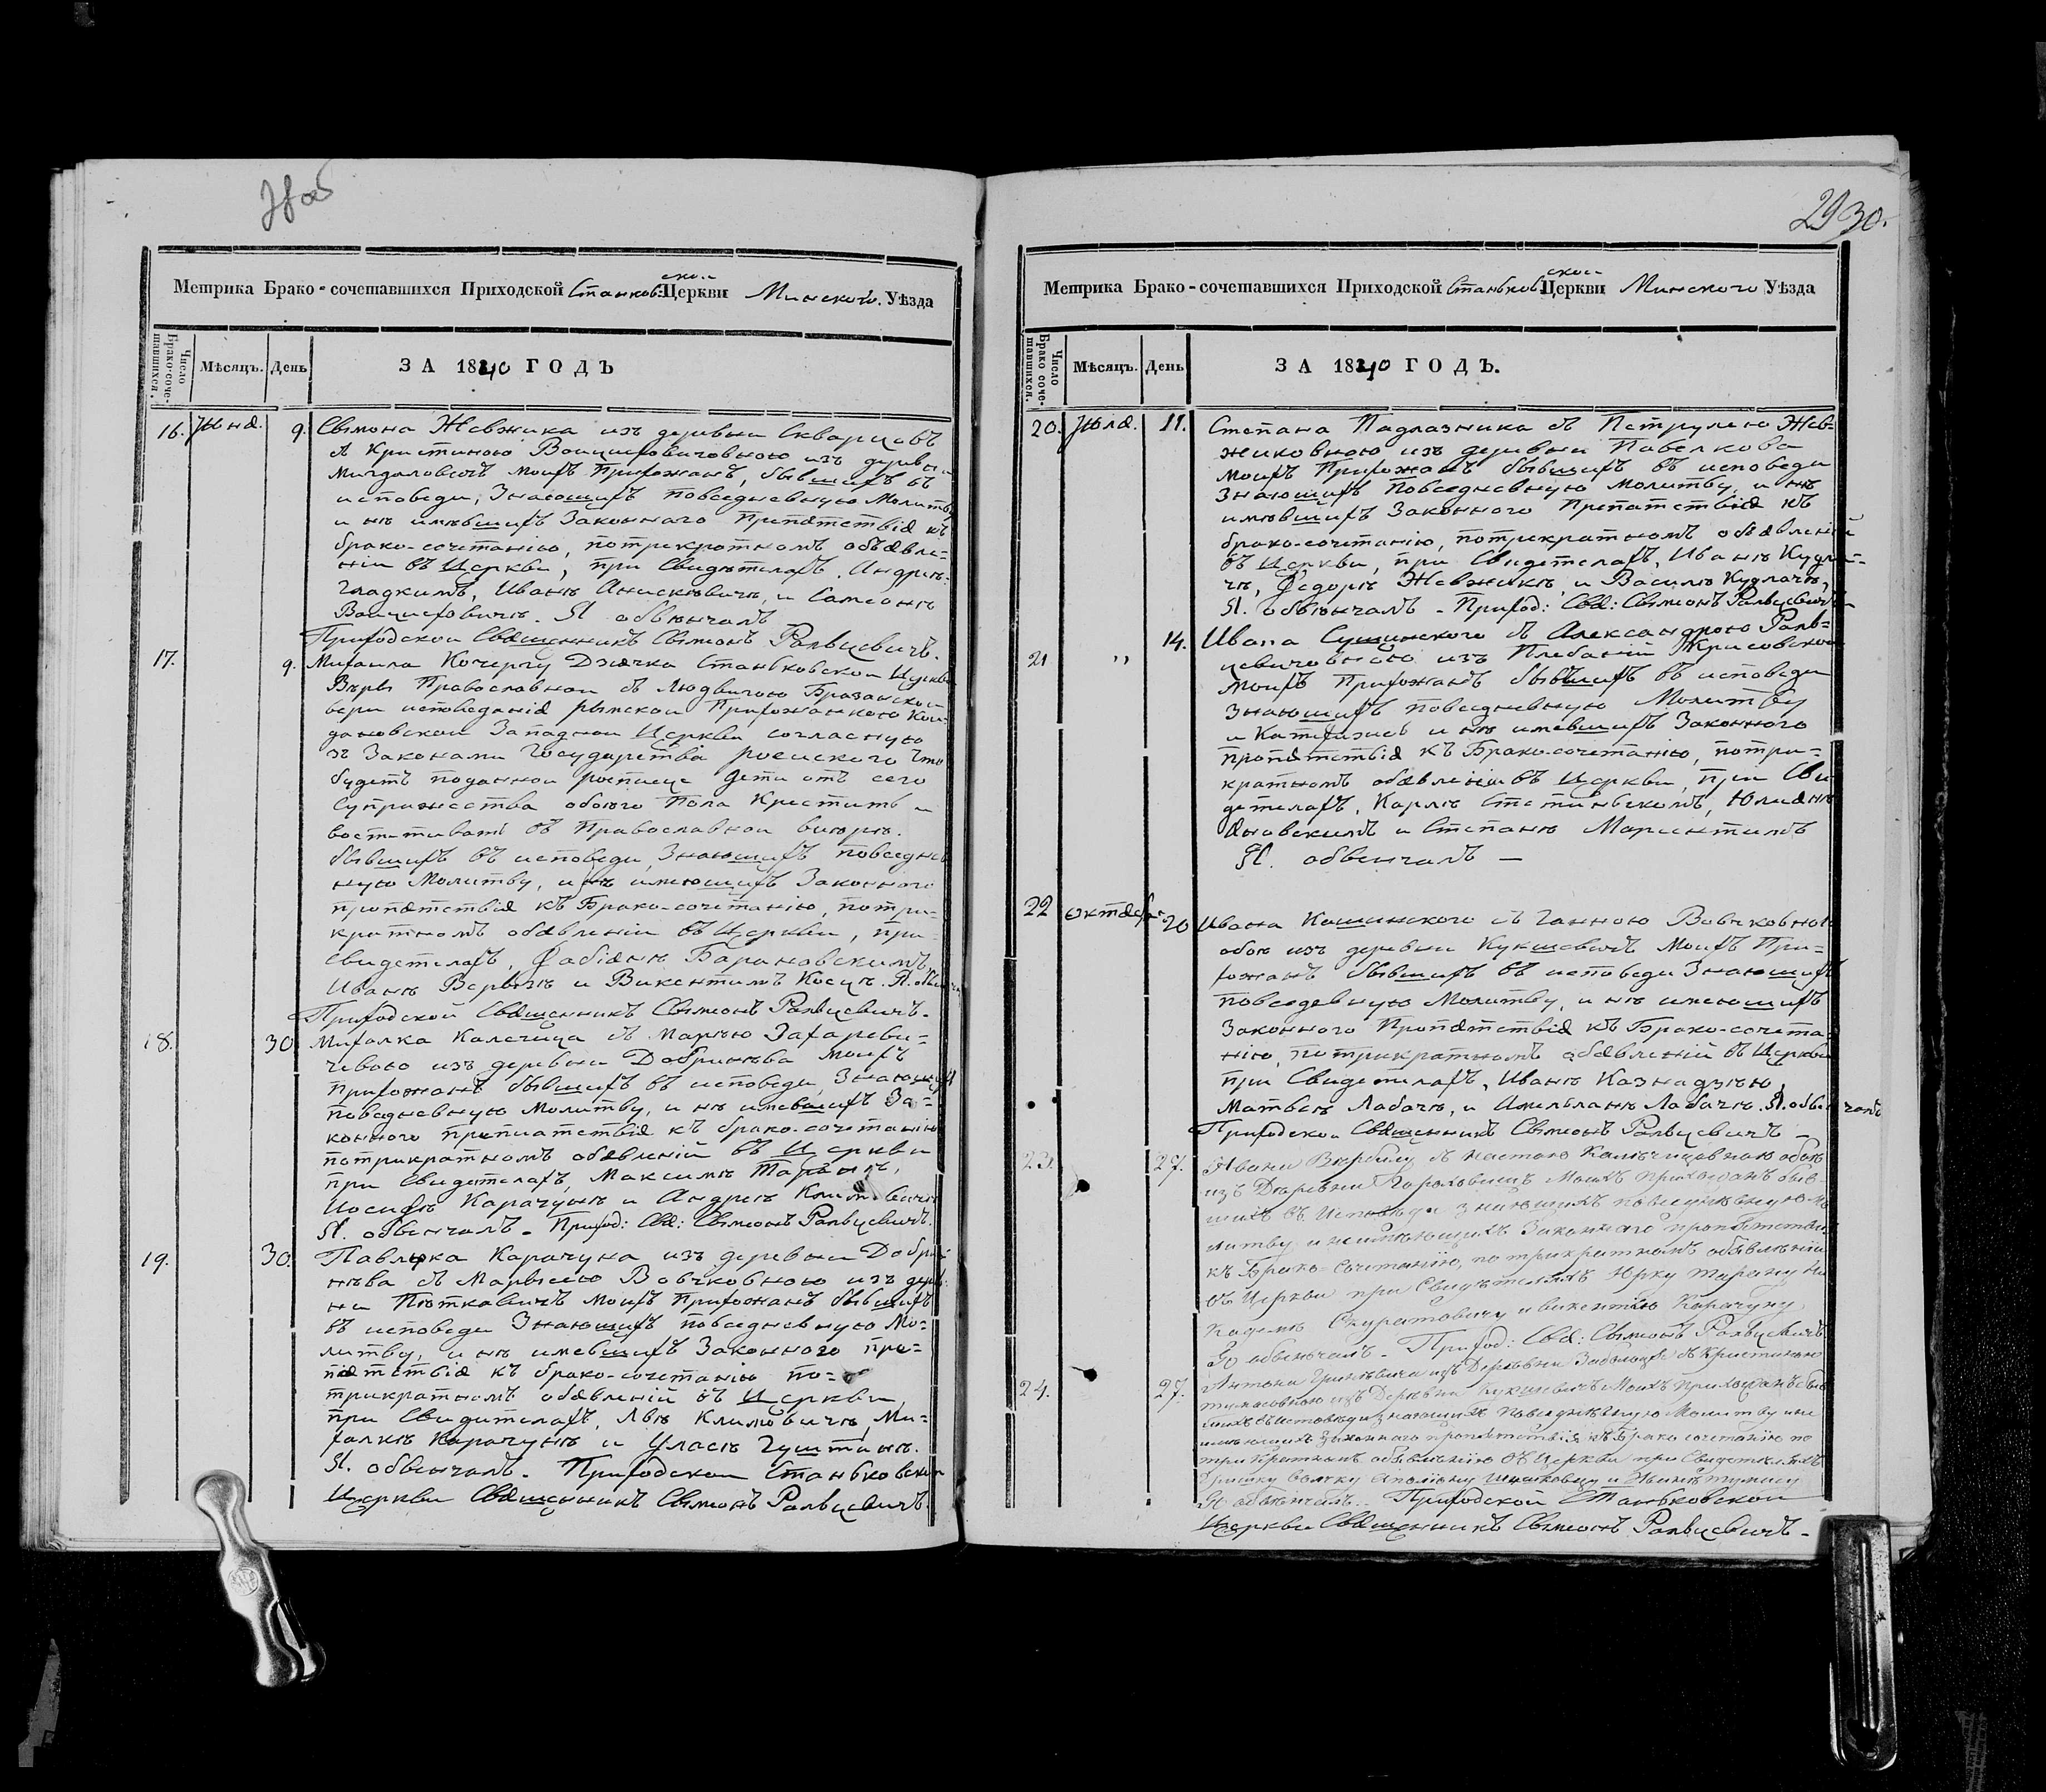 Метрика Брако-сочетавшихся Приходской Станков-ской Церкви Минского Уѣзда
Число Брако-соче-тавшихся.
Мѣсяцъ.
День
ЗА 1840 ГОДЪ
16. Июня. 9. Сымона Жевжика изъ деревни Скварцевъ
съ Кристиною Войцисховичовною изъ деревни
моихъ Прихожанъ, бывшихъ въ
исповеди, Знающихъ повседневную Молитву
и не имѣвшихъ Законнаго Препятствія къ
брако-сочетанію, потрикратномъ объявле-
ніи въ Церкви, при Свидѣтеляхъ, Андреѣ
Гладкимъ, Иванѣ и Самсонѣ
Я обвѣнчалъ
Приходской Священникъ Сымонъ Ральцевичъ.
17. 9. Михаила Кочергу Дзячка Станьковской Церкви
Вѣры Православной съ Людвигою
вери исповеданія рымской Прихожанкою Кой-
дановской Западной Церкви согласную
зъ Законами Государства росиского что
будетъ дети отъ сего
Супружества обоего Пола Крестить и
воспитивать въ Православной
бывшихъ въ исповеди, Знающихъ повседнев
ную Молитву, и не имеющихъ Законного
пропятствія къ Брако-сочетанію, потри-
кратномъ обявленіи въ Церкви, при
Свидетеляхъ, Фабіянѣ Барановскимъ,
Иванѣ и Викентимъ
Приходской Священникъ Сымонъ Ральцевичъ.
18. 30 Михалка Калечица съ Марыею Захареви-
човою изъ деревни Добринёва моихъ
прихожанъ бывшихъ въ исповеди, Знающихъ
повседневную молитву, и не имевшихъ За-
конного препиятствія къ брако-сочетанію
потрикратномъ обявленій въ Церкви
при Свидетеляхъ, Максимѣ
Иосифѣ Карачунѣ и Андреѣ Климовичѣ
Я. обвенчалъ. Приход: Свя: Сымонъ Ральцевичъ.
19. 30. Павлюка Карачуна изъ деревни Добри
нѣва съ Марысею Вовчковною изъ дерев-
ни Пѣткавичъ моихъ Прихожанъ бывшихъ
въ исповеди Знающихъ повседневную Мо-
литву, и не имевшихъ Законного про-
пятствія къ брако-сочетанію по-
трикратномъ обявленій въ Церкви
при Свидетеляхъ, Лвѣ Климовичѣ, Ми-
халкѣ Карачунѣ и Уласѣ
Я. обвенчалъ. Приходской Станьковской
Церкви Священникъ Сымонъ Ральцевичъ.
2930.
Метрика Брако-сочетавшихся Приходской Станьков-ской Церкви Минского Уѣзда
Число Брако соче-тавшихся.
Мѣсяцъ.
День
ЗА 1840 ГОДЪ.
20. Июля. 11. Степана Падлазника съ Петрулею Жев-
жиковною изъ деревни
моихъ Прихожанъ бывшихъ въ исповеди
Знающихъ Повседневную Молитву, и не
имѣвшихъ Законного Препатствія къ
брако-сочетанію, потрикратномъ обявленій
въ Церкви, при Свидетеляхъ, Иванѣ Кудла-
чѣ, Федорѣ Жевжикѣ, и Василѣ Кудлачѣ,
Я. обвѣнчалъ - Приход: Свя: Сымонъ Ральцевичъ
21 " 14. Ивана Сушинского съ Александрою Раль-
цевичовною изъ Плебаніи
Моихъ Прихожанъ бывшихъ въ исповеди
Знающихъ повседневную Молитву
и Катихизис и не имевшихъ Законного
пропятствія къ Брако-сочетанію, потри-
кратномъ обявленіи въ Церкви, при Сви
детеляхъ, Карлѣ Юліянѣ
и Степанѣ
Я. обвенчалъ —
22 октября 20 Ивана Кашинского съ Ганною Вовчковною
обою изъ деревни Кукшевичъ Моихъ При-
хожанъ бывшихъ въ исповеди Знающихъ
повседевную Молитву, и не имеющихъ
Законного Пропятствія къ Брако-сочета-
нію, потрикратномъ обявленій въ Церкви
при Свидетеляхъ, Иванѣ Казнадзѣю,
Матвеѣ Лабачѣ, и Амельянѣ Лабачѣ. Я. обвенчалъ
Приходской Священникъ Сымонъ Ральцевичъ —
23. 27. Ивана съ Настою Калечицовною обою
изъ Деревни Гороховищъ Моихъ прихожанъ быв-
шихъ въ Исповеди знающихъ повседневную Мо
литву и неимѣющихъ Законнаго пропятствія
къ Брако-сочетанію, потрикратномъ обявленіи
въ Церкви при Свидѣтеляхъ Юрку
Скуратовичу и викентію Карачуну
Я обвенчалъ. — Приход: Свя: Сымонъ Ральцевичъ
24. 27. Антона изъ Деревни съ Кристиною
изъ Деревни Кукшевичъ Моихъ Прихожанъ быв
шихъ въ исповѣди знающихъ повседнѣвную Молитву и не
имѣющихъ Законного пропятствія къ Брако сочетанію по
трикратномъ обявленію въ Церкви при Свидетеляхъ
Я обвѣнчалъ. Приходской Станьковской
Церкви Священникъ Сымонъ Ральцевичъ —